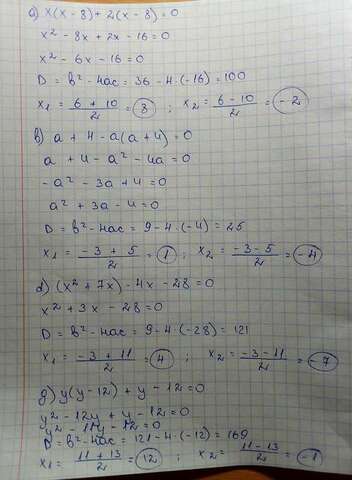 а) x(x-8)+2(x-8)=0
x² - 8x + 2x - 16 = 0
x² - 6x - 16 = 0
D = b² - 4ac = 36 - 4·(-16) = 100
x₁ = (6 + 10)/2 = 8 ; x₂ = (6 - 10)/2 = -2
в) a + 4 - a(a+4) = 0
a + 4 - a² - 4a = 0
-a² - 3a + 4 = 0
a² + 3a - 4 = 0
D = b² - 4ac = 9 - 4·(-4) = 25
x₁ = (-3 + 5)/2 = 1 ; x₂ = (-3 - 5)/2 = -4
d) (x² + 7x) - 4x - 28 = 0
x² + 3x - 28 = 0
D = b² - 4ac = 9 - 4·(-28) = 121
x₁ = (-3 + 11)/2 = 4 ; x₂ = (-3 - 11)/2 = -7
д) y(y-12) + y - 12 = 0
y² - 12y + y - 12 = 0
y² - 11y - 12 = 0
D = b² - 4ac = 121 - 4·(-12) = 169
x₁ = (11 + 13)/2 = 12 ; x₂ = (11 - 13)/2 = -1